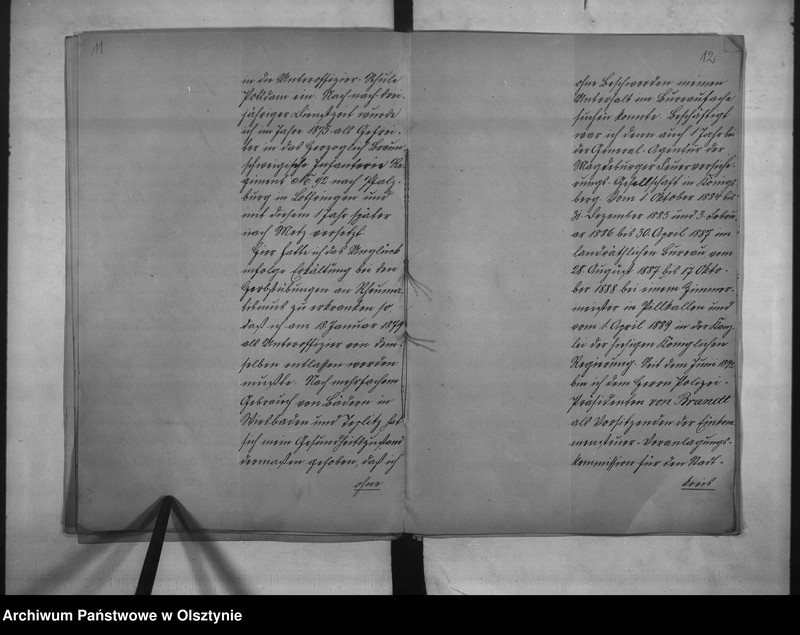 11
in die Unteroffizier-Schule
Potsdam ein. Nach nach drei-
jähriger Dienstzeit wurde
ich im Jahre 1875 als Gefrei-
ter in das Herzoglich Braun-
schweigische Infanterie Re-
giment No 92 nach Pfalz-
burg in Lothringen und
mit diesem 1 Jahr später
nach Metz versetzt.
Hier hatte ich das Unglück
infolge Erkältung bei den
Herbstübungen an Rheuma-
tismus zu erkranken so
daß ich am 18. Januar 1879
als Unteroffizier von dem-
selben entlassen werden
mußte. Nach mehrfachem
Gebrauch von Bädern in
Wiesbaden und Teplitz hat
sich mein Gesundheitszustand
dermaßen gehoben, daß ich
ohne
12
ohne Beschwerden meinen
Unterhalt im Bureaufache
suchen konnte. Beschäftigt
war ich denn auch 1 Jahr bei
der General-Agentur der
Magdeburger Feuerversiche-
rungs-Gesellschaft in Königs-
berg. Vom 1 Oktober 1884 bis
31 Dezember 1885 und 3. Febru-
ar 1886 bis 30. April 1887 im
landräthlichen Bureau vom
28. August 1887 bis 17 Okto-
ber 1888 bei einem Zimmer-
meister in Pillkallen und
vom 1 April 1889 in der Kanz-
lei der hiesigen Königlichen
Regierung. Seit dem Juni 1892
bin ich dem Herrn Polizei-
Präsidenten von Brandt
als Vorsitzenden der Einkom-
mensteuer-Veranlagungs-
Kommission für den Stadt-
kreis
Archiwum Państwowe w Olsztynie